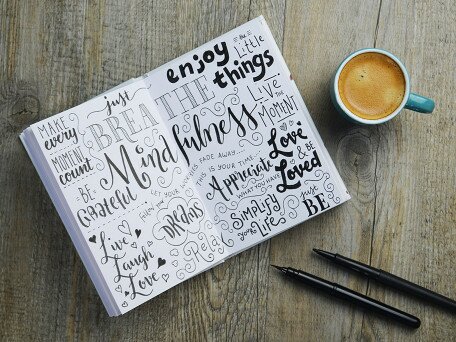 MAKE
every
MOMENT
count
just
BREATHE
BE
Grateful
Mindfulness
Live
Laugh
Love
YOUR
DREAMS
Relax
enjoy
the
Little
things
Live
THE
MOMENT
FADE AWAY...
THIS IS YOUR TIME
Appreciate
WHAT YOU HAVE
Love
& BE
Loved
Simplify
your
LIFE
just
BE